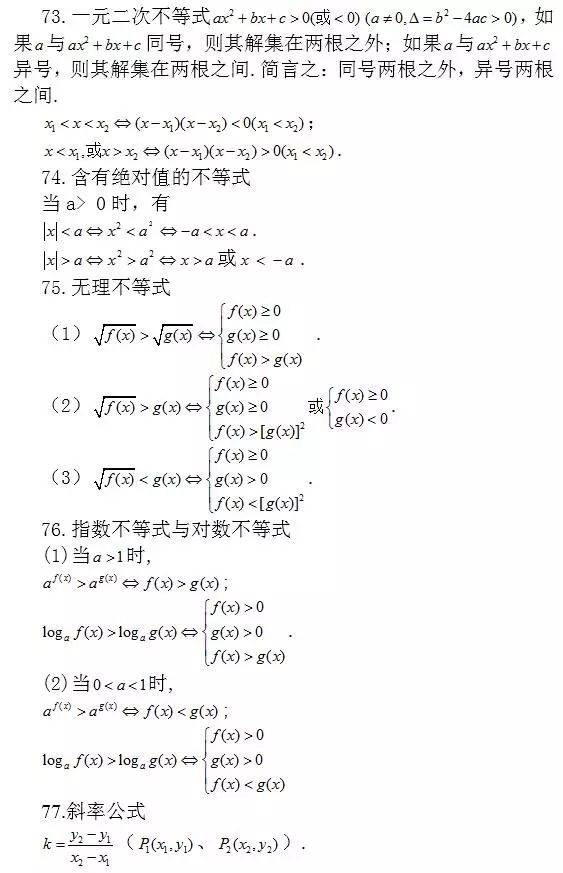 73.一元二次不等式ax²+bx+c>0(或<0)(a≠0,Δ=b²−4ac>0)，如
果a与ax²+bx+c同号，则其解集在两根之外；如果a与ax²+bx+c
异号，则其解集在两根之间.简言之：同号两根之外，异号两根
之间.
x₁<x<x₂⇔(x−x₁)(x−x₂)<0(x₁<x₂)；
x<x₁,或x>x₂⇔(x−x₁)(x−x₂)>0(x₁<x₂).
74.含有绝对值的不等式
当a> 0时，有
|x|<a⇔x²<a²⇔−a<x<a.
|x|>a⇔x²>a²⇔x>a或x<−a.
75.无理不等式
（1）√f(x)>√g(x)⇔{f(x)≥0
g(x)≥0
f(x)>g(x)
.
（2）√f(x)>g(x)⇔{f(x)≥0
g(x)≥0
f(x)>[g(x)]²
或{f(x)≥0
g(x)<0
.
（3）√f(x)<g(x)⇔{f(x)≥0
g(x)>0
f(x)<[g(x)]²
.
76.指数不等式与对数不等式
(1)当a>1时,
a^f(x)>a^g(x)⇔f(x)>g(x);
logₐf(x)>logₐg(x)⇔{f(x)>0
g(x)>0
f(x)>g(x)
.
(2)当0<a<1时,
a^f(x)>a^g(x)⇔f(x)<g(x);
logₐf(x)>logₐg(x)⇔{f(x)>0
g(x)>0
f(x)<g(x)
77.斜率公式
k=(y₂−y₁)/(x₂−x₁)（P₁(x₁,y₁)、P₂(x₂,y₂)）.